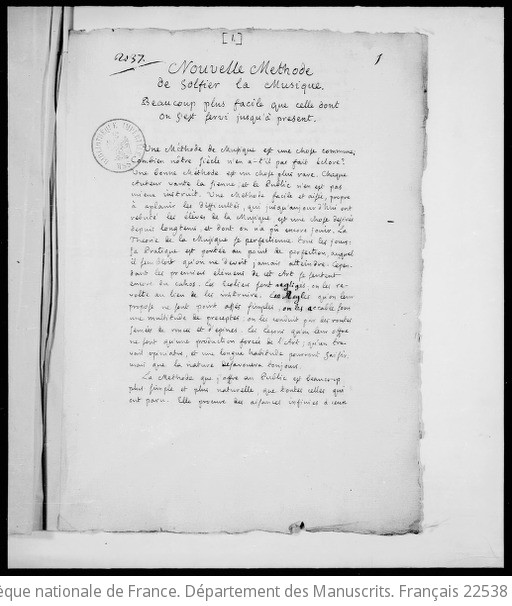 [1.]
1
Nouvelle Methode
de Solfier la Musique.
Beaucoup plus facile que celle dont
on s'est servi jusqu'à present.
Une Méthode de Musique est une chose commune,
Combien nôtre siècle n'en a-t'il pas fait éclore?
Une bonne Methode est un chose plus rare. Chaque
Auteur vante la sienne, et le Public n'en est pas
mieux instruit. Une Methode facile et aisée, propre
à aplanir les difficultés, qui jusqu'aujourd'hui ont
rebuté les élèves de la Musique est une chose desirée
depuis longtems, et dont on n'a pû encore jouir. La
Theorie de la Musique se perfectionne tous les jours;
sa Pratique est portée au point de perfection, auquel
il sembloit qu'on ne devoit jamais atteindre. Cepen-
dant les premiers élémens de cet Art se sentent
encore du cahos. Les Ecoliers sont negligés, on les re-
volte au lieu de les instruire. Les Regles qu'on leur
propose ne sont point assés simples, on les accable sous
une multitude de preceptes; on les conduit par des routes
semées de ronces et d'épines. Les leçons qu'on leur offre
ne sont qu'une production forcée de l'Art; qu'un tra-
vail opiniatre, et une longue habitude pourront saisir,
mais que la nature desavouera toujours.
La Methode que j'ofre au Public est beaucoup
plus simple et plus naturelle que toutes celles qui
ont paru. Elle procure des aisances infinies à ceux
èque nationale de France. Département des Manuscrits. Français 22538